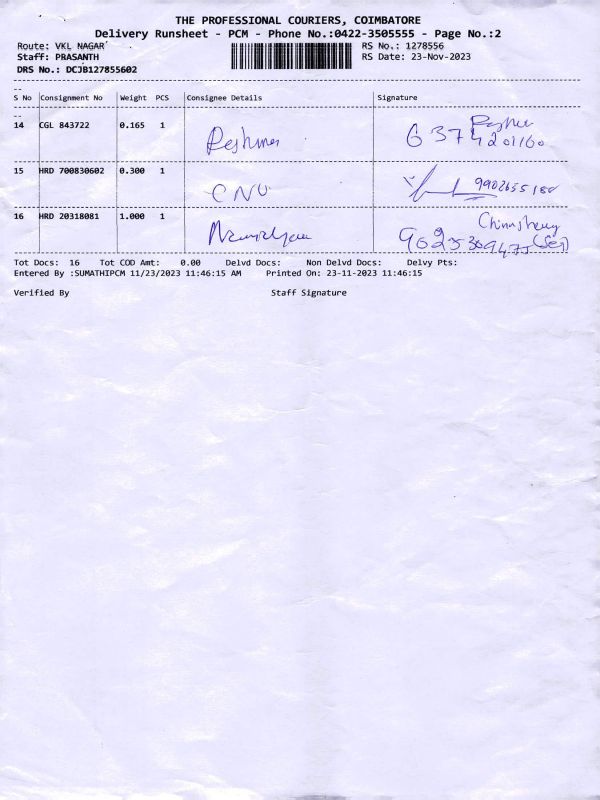 THE PROFESSIONAL COURIERS, COIMBATORE
Delivery Runsheet - PCM - Phone No.:0422-3505555 - Page No.:2
Route: VKL NAGAR RS No.: 1278556
Staff: PRASANTH RS Date: 23-Nov-2023
DRS No.: DCJB127855602
S No Consignment No Weight PCS Consignee Details Signature
14 CGL 843722 0.165 1
15 HRD 700830602 0.300 1
16 HRD 20318081 1.000 1
Tot Docs: 16 Tot COD Amt: 0.00 Delvd Docs: Non Delvd Docs: Delvy Pts:
Entered By :SUMATHIPCM 11/23/2023 11:46:15 AM Printed On: 23-11-2023 11:46:15
Verified By Staff Signature